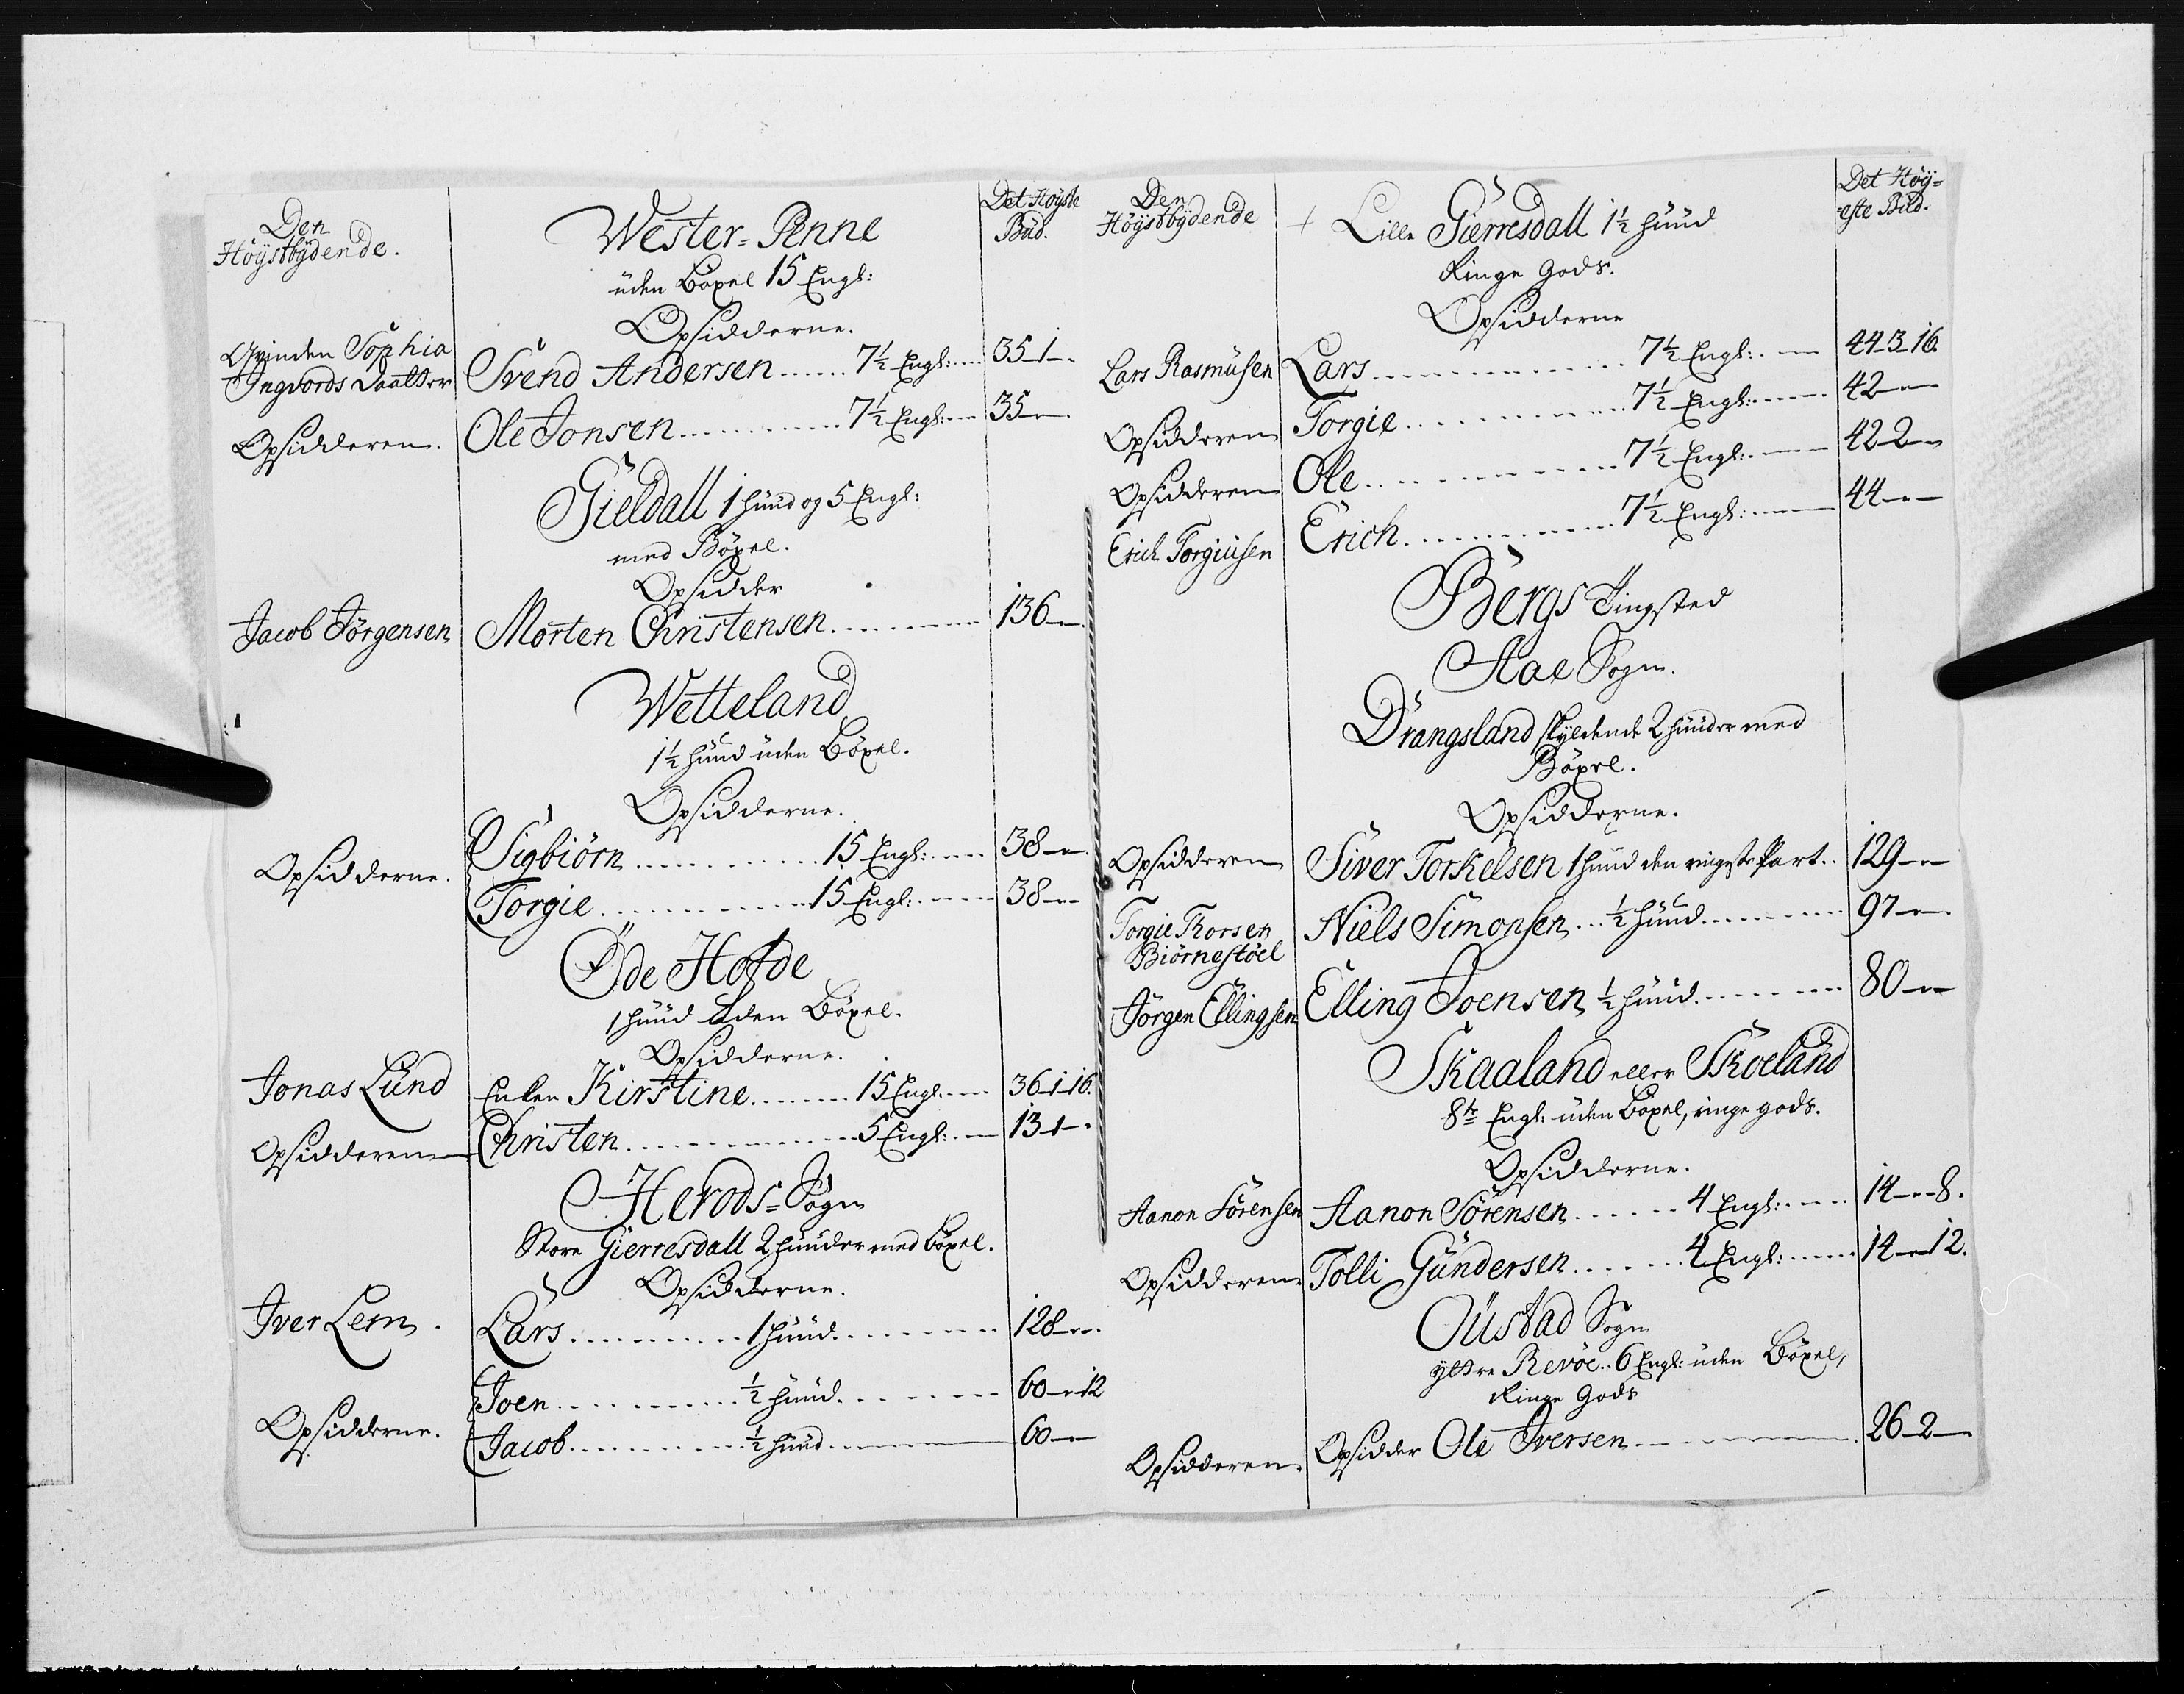 Den
Höystbÿdende.
Wester-Penne
Det Höyste
Bud.
uden Böxel 15 Engl:
Opsidderne.
Qvinden Sophia
Ingvords Daatter
Svend Andersen ...... 7½ Engl: 35-1-
Opsidderen. Ole Jonsen ............ 7½ Engl: 35--
Gieldall 1 huud og 5 Engl:
med Böxel.
Opsidder
Jacob Jörgensen Morten Christensen ......... 136--
Wetteland
1½ huud uden Böxel.
Opsidderne.
Opsidderne. Sigbiörn ............ 15 Engl: 38--
Torgie ............ 15 Engl: 38--
Öde Hofde
1 huud uden Böxel.
Opsidderne.
Jonas Lund Enken Kirstine ........ 15 Engl. 36-1-16.
Opsidderen Christen ............ 5 Engl: 13-1-
Herods-Sogn
Store Gierresdall 2 huuder med Böxel.
Opsidderne.
Iver Lem. Lars ............ 1 huud ......... 128--
Opsidderne. Joen ............ ½ huud ......... 60--12
Jacob ............ ½ huud ......... 60--
Den
Höystbÿdende
+ Lille Gierresdall 1½ huud
Det Höy=
=este Bud.
Ringe Gods.
Opsidderne
Lars Rasmusen Lars ............ 7½ Engl: 44-3-16.
Opsidderen Torgie ............ 7½ Engl: 42--
Opsidderen Ole ............ 7½ Engl: 42-2-
Erich Torgiusen Erich ............ 7½ Engl: 44--
Bergs Tingsted
Aae Sogn.
Drangsland skyldende 2 huuder med
Böxel.
Opsidderne.
Opsidderen Siver Torkelsen 1 huud den ringeste Part.. 129--
Torgie Thorsen
Biörnestöel
Niels Simonsen... ½ huud ......... 97--
Jörgen Ellingsen Elling Joensen ½ huud ......... 80--
Skaaland eller Skoeland
8te Engl: uden Böxel, ringe gods.
Opsidderne.
Aanon Sörensen Aanon Sörensen ...... 4 Engl: 14--8.
Opsidderen Tolli Gundersen ...... 4 Engl: 14--12.
Oustad Sogn
yttre Revöe.. 6 Engl: uden Böxel,
Ringe Gods
Opsidderen. Opsidder Ole Iversen ......... 26-2-